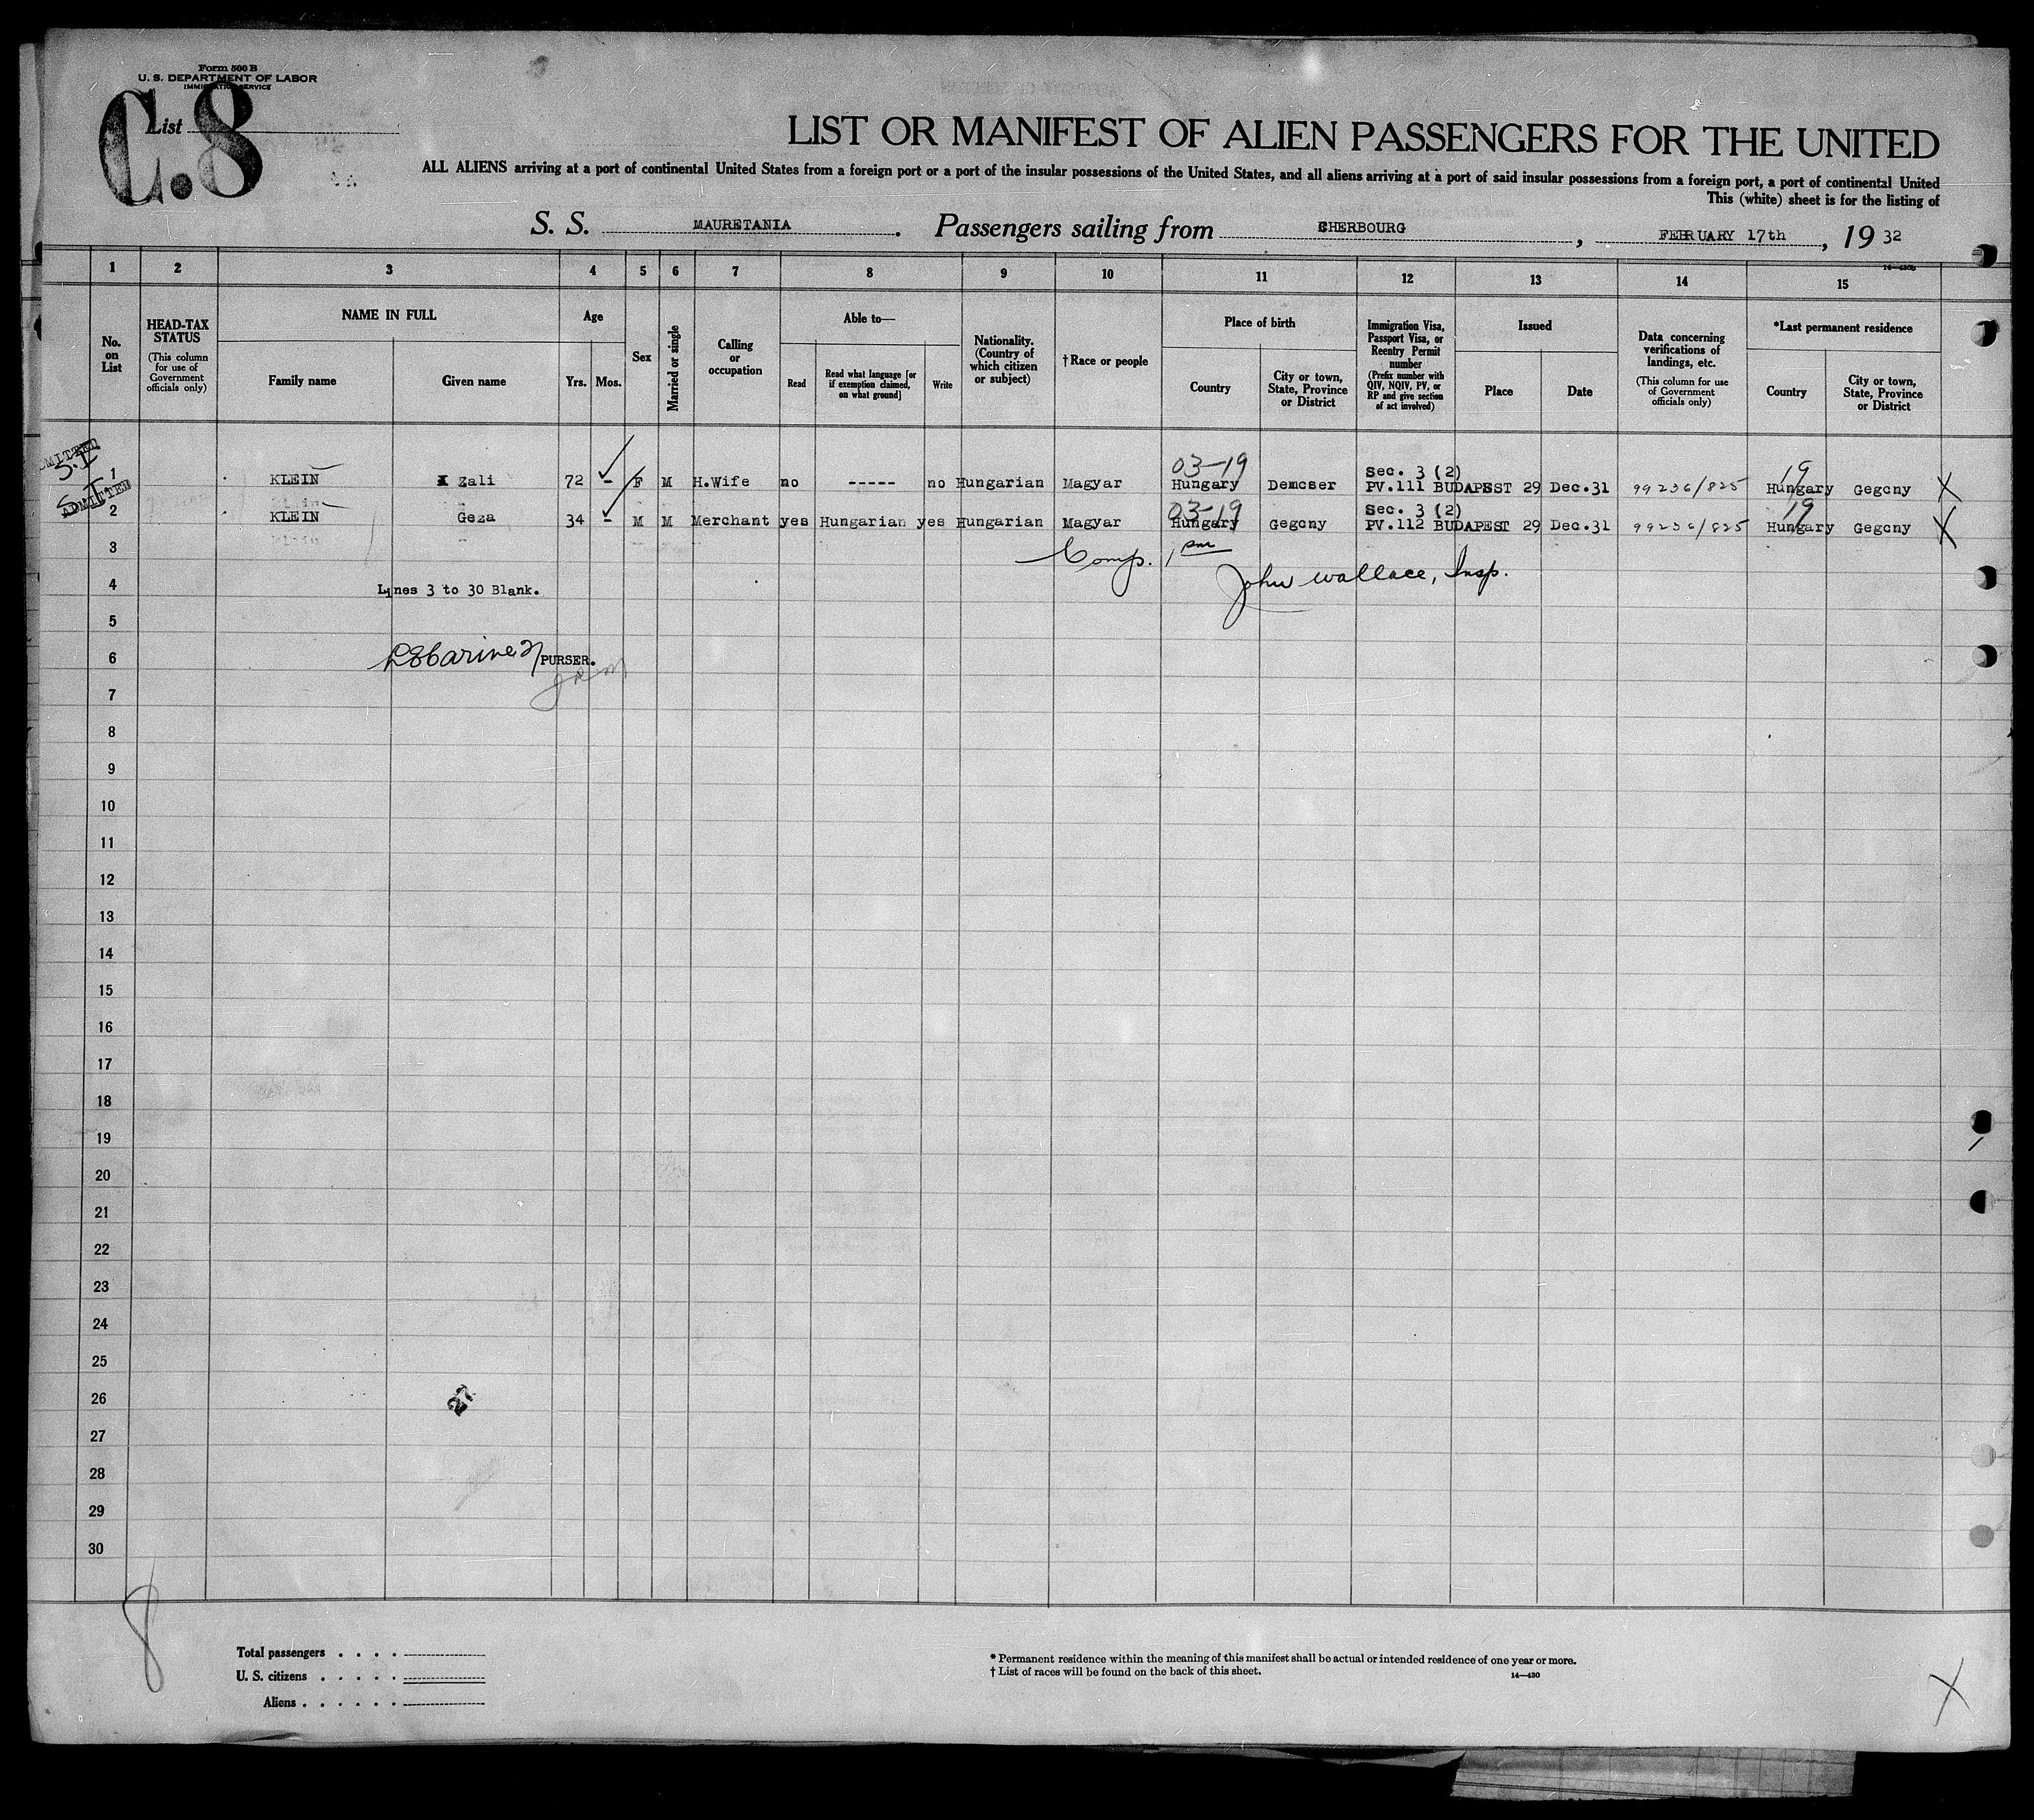 Form 500 B
U. S. DEPARTMENT OF LABOR
IMMIGRATION SERVICE
List
C.8
LIST OR MANIFEST OF ALIEN PASSENGERS FOR THE UNITED
ALL ALIENS arriving at a port of continental United States from a foreign port or a port of the insular possessions of the United States, and all aliens arriving at a port of said insular possessions from a foreign port, a port of continental United
This (white) sheet is for the listing of
S. S. MAURETANIA. Passengers sailing from CHERBOURG, FEBRUARY 17th, 19 32
14—430b
1 2 3 4 5 6 7 8 9 10 11 12 13 14 15
No. on List
HEAD-TAX STATUS (This column for use of Government officials only)
NAME IN FULL
Family name
Given name
Age
Yrs. Mos.
Sex
Married or single
Calling or occupation
Able to—
Read
Read what language [or if exemption claimed, on what ground]
Write
Nationality. (Country of which citizen or subject)
†Race or people
Place of birth
Country
City or town, State, Province or District
Immigration Visa, Passport Visa, or Reentry Permit number (Prefix number with QIV, NQIV, PV, or RP and give section of act involved)
Issued
Place
Date
Data concerning verifications of landings, etc. (This column for use of Government officials only)
*Last permanent residence
Country
City or town, State, Province or District
ADMITTED
S.I.
03-19 Sec. 3 (2) 19
1 KLEIN Zali 72 - F M H.Wife no ----- no Hungarian Magyar Hungary Demcser PV.111 BUDAPEST 29 Dec.31 99236/825 Hungary Gegcny X
S.I.
ADMITTED
03-19 Sec. 3 (2) 19
2 KLEIN Geza 34 - M M Merchant yes Hungarian yes Hungarian Magyar Hungary Gegcny PV.112 BUDAPEST 29 Dec.31 99236/825 Hungary Gegcny X
3 Comp. 1 pm
John Wallace, Insp.
4 Lines 3 to 30 Blank.
5
6 PURSER.
7
8
9
10
11
12
13
14
15
16
17
18
19
20
21
22
23
24
25
26
27
28
29
30
8
Total passengers . . . .
U. S. citizens . . . . .
Aliens . . . . . .
* Permanent residence within the meaning of this manifest shall be actual or intended residence of one year or more.
† List of races will be found on the back of this sheet.
14—430
X